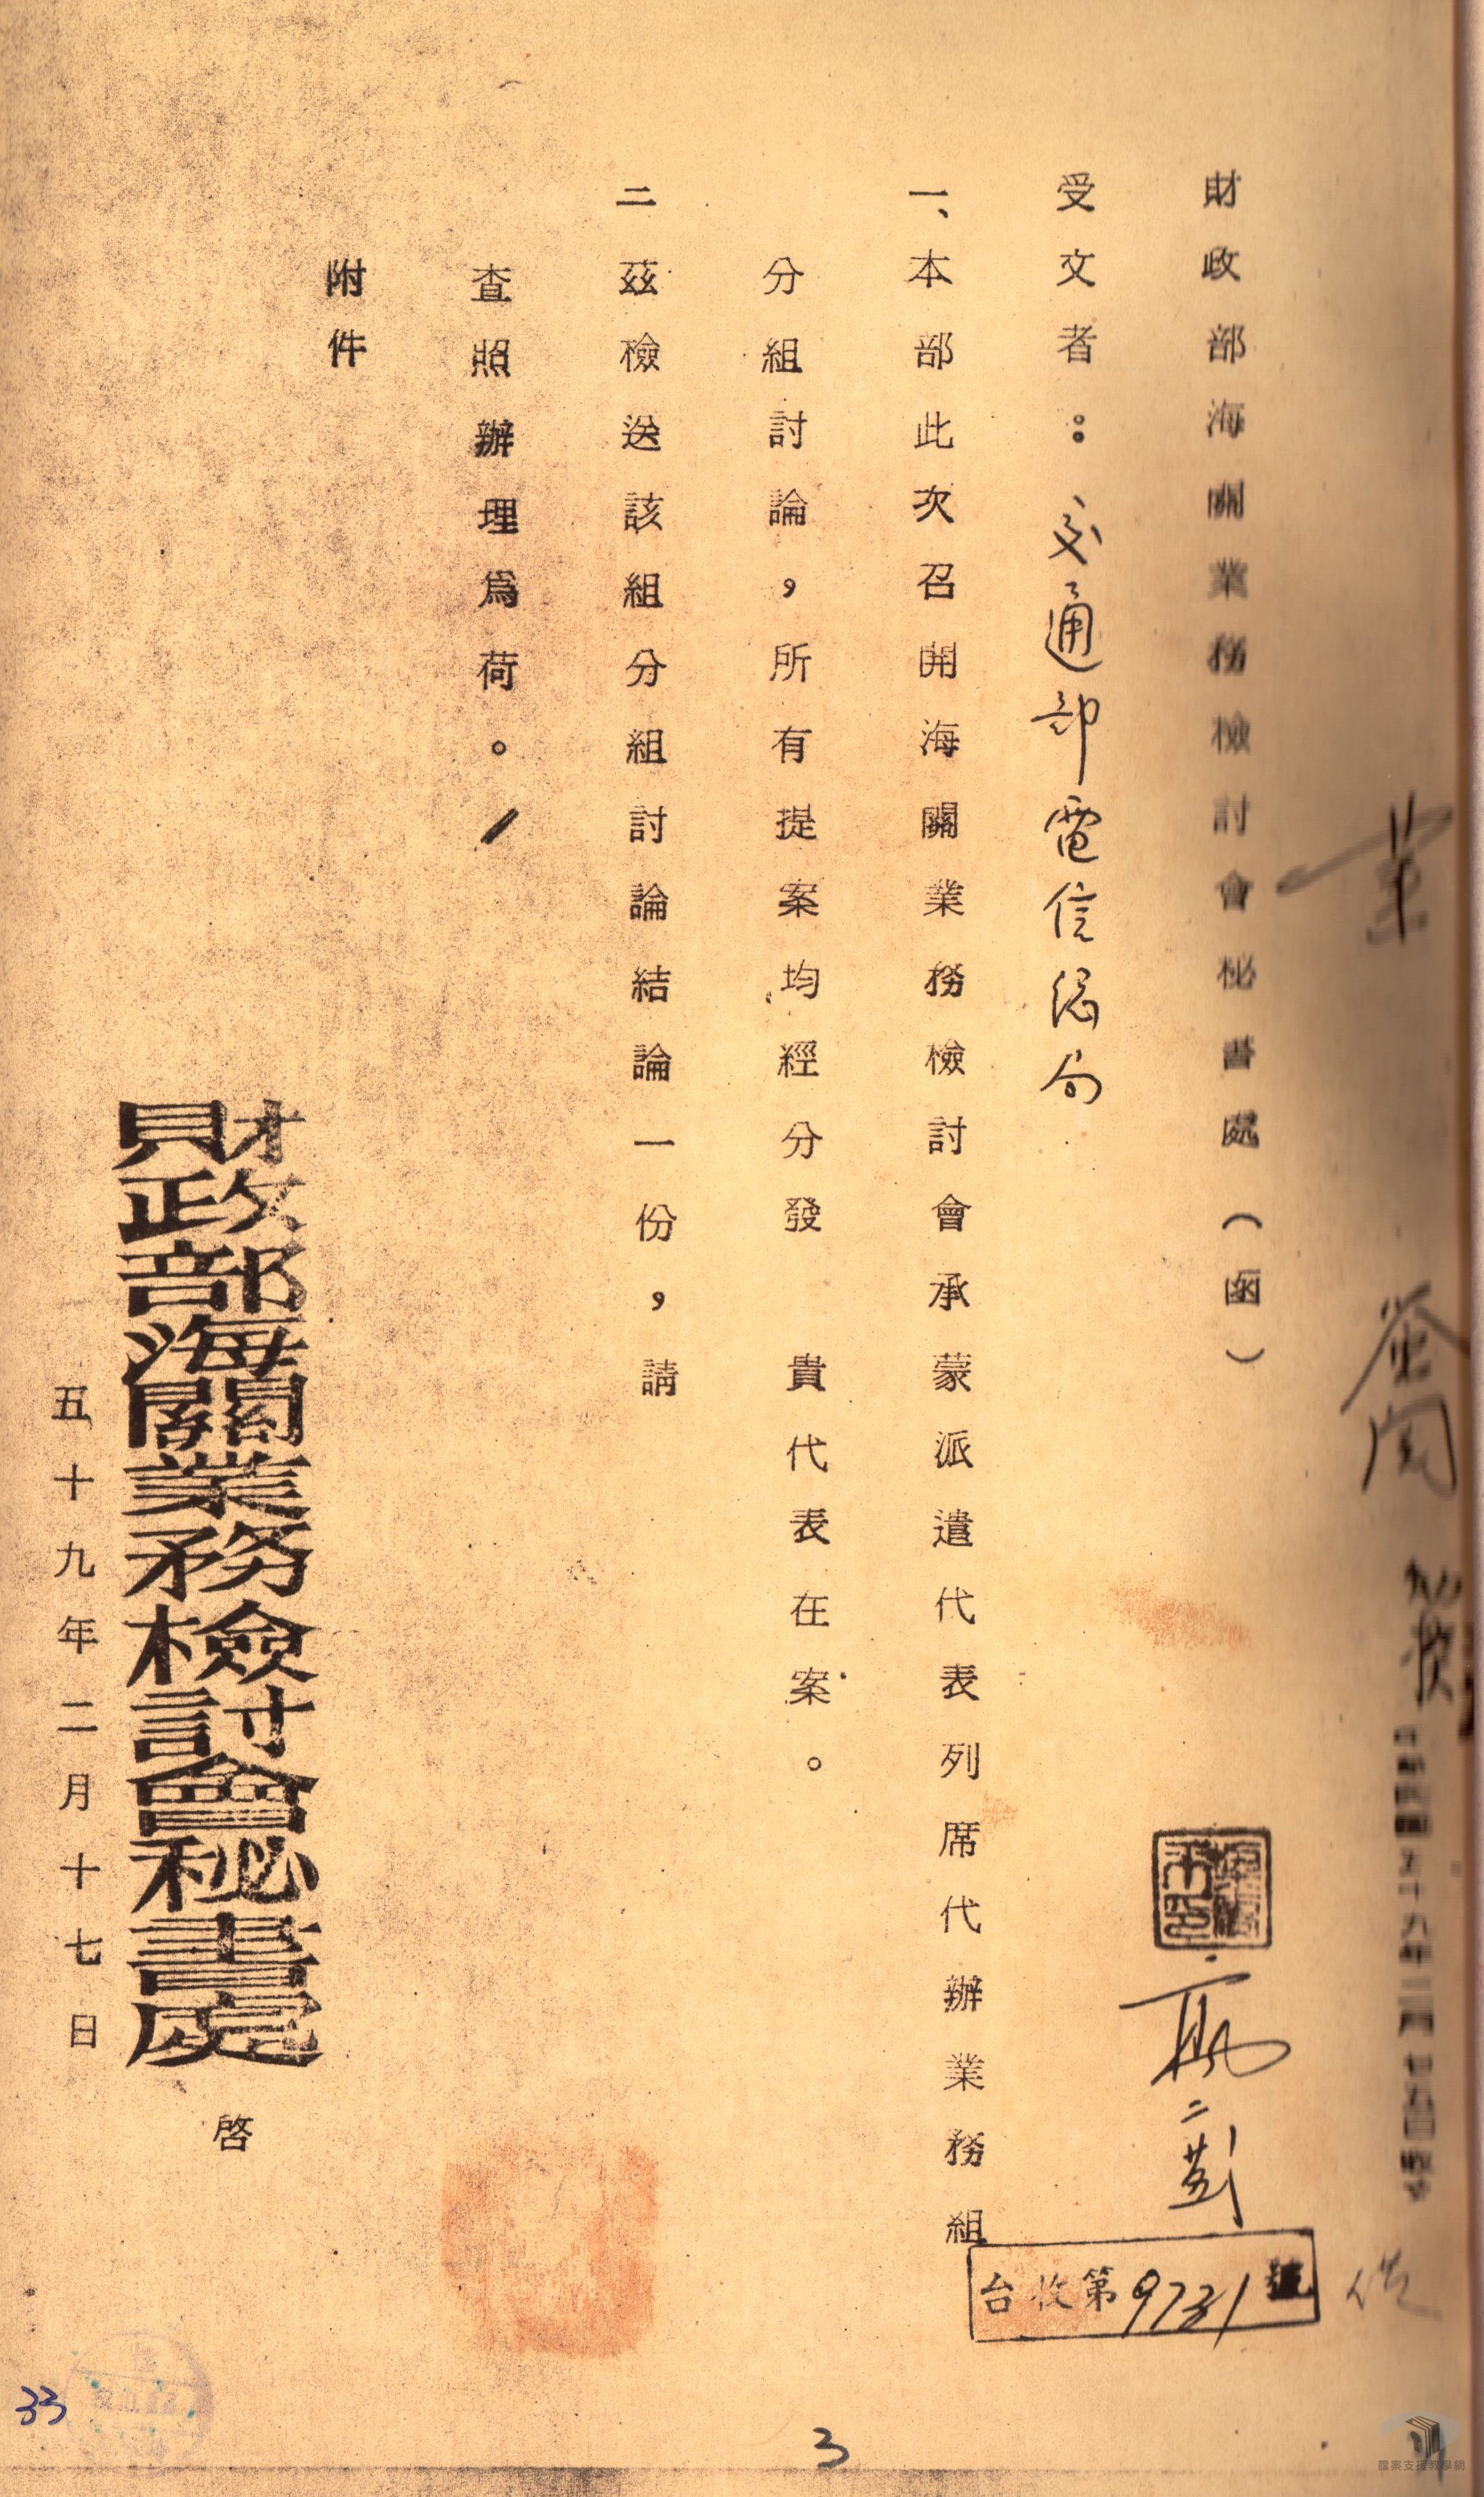 財政部海關業務檢討會秘書處（函）
受文者：交通部電信總局
一、本部此次召開海關業務檢討會承蒙派遣代表列席代辦業務組
分組討論，所有提案均經分發　貴代表在案。
二茲檢送該組分組討論結論一份，請
查照辦理為荷。
附件
財政部海關業務檢討會秘書處 啓
五十九年二月十七日
台收第9731號
33
3
檔案支援教學網